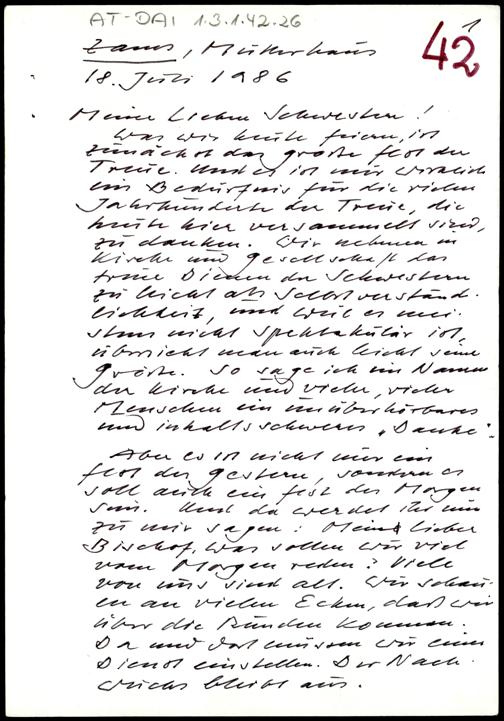 AT-DAI 1.3.1.42.26
1
42
Zams, Mutterhaus
18. Juli 1986
Meine lieben Schwestern!
Was wir heute feiern, ist
zunächst das große Fest der
Treue. Und es ist mir wirklich
ein Bedürfnis für die vielen
Jahrhunderte der Treue, die
heute hier versammelt sind,
zu danken. Wir nehmen in
Kirche und Gesellschaft das
treue Dienen der Schwestern
zu leicht als Selbstverständ-
lichkeit, und weil es mei-
stens nicht spektakulär ist,
übersieht man auch leicht seine
Größe. So sage ich im Namen
der Kirche und vieler, vieler
Menschen ein unüberhörbares
und inhaltsschweres „Danke".
Aber es ist nicht nur ein
Fest des Gestern, sondern es
soll auch ein Fest des Morgen
sein. Und da werdet ihr nun
zu mir sagen: Mein lieber
Bischof, was sollen wir viel
vom Morgen reden? Viele
von uns sind alt. Wir schau-
en an vielen Ecken, daß wir
über die Runden kommen.
Da und dort müssen wir einen
Dienst einstellen. Der Nach-
wuchs bleibt aus.